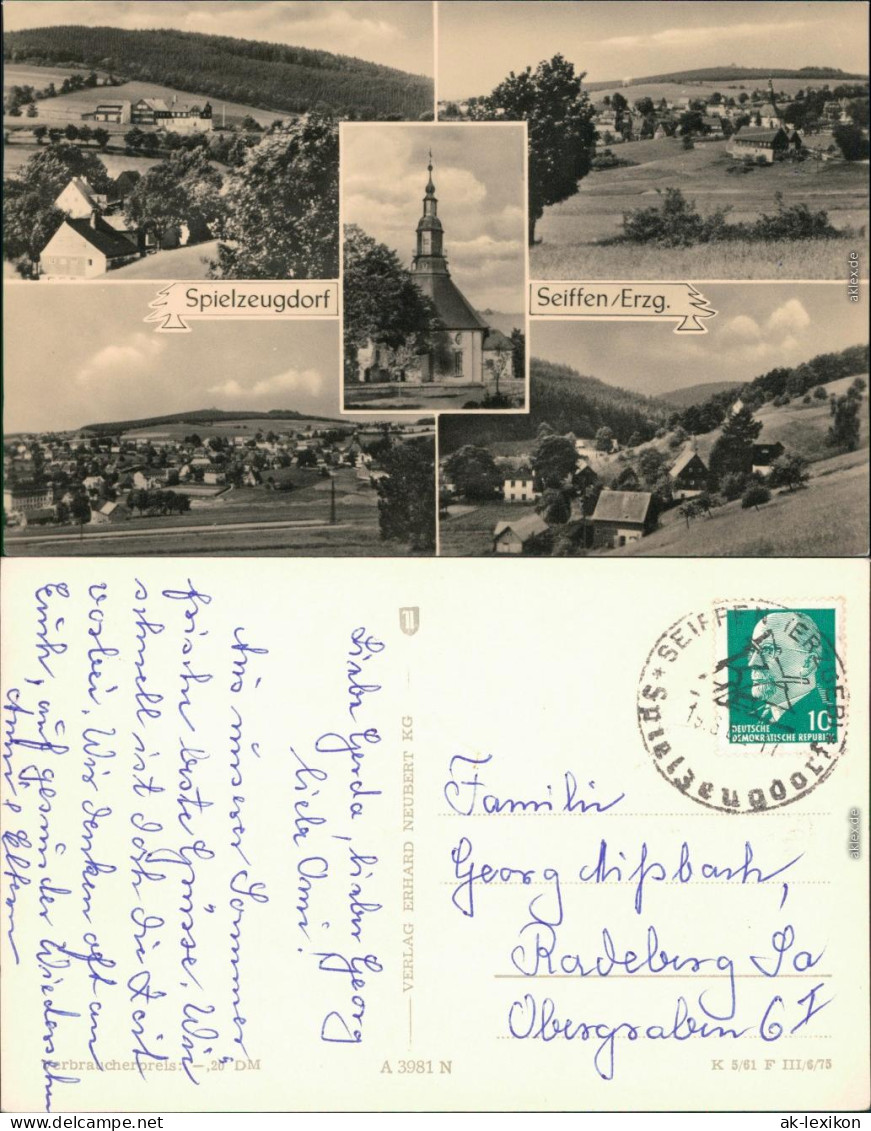 Spielzeugdorf
Seiffen/Erzg.
aklex.de
Liebe Gerda, lieber Georg
liebe Omi!
Aus unserer Sommer
frische beste Grüsse. Wie
schnell ist doch die Zeit
vorbei. Wir denken oft an
Euch, auf gesundes Wiedersehn
Eltern
VERLAG ERHARD NEUBERT KG
SEIFFEN (ERZGEB)
DEUTSCHE
DEMOKRATISCHE REPUBLIK
10
Familie
Georg Mißbach,
Radeberg Sa
Obergraben 6 I
aklex.de
Verbraucherpreis: -,20 DM
A 3981 N
K 5/61 F III/6/75
www.ak-lexikon.de
ak-lexikon